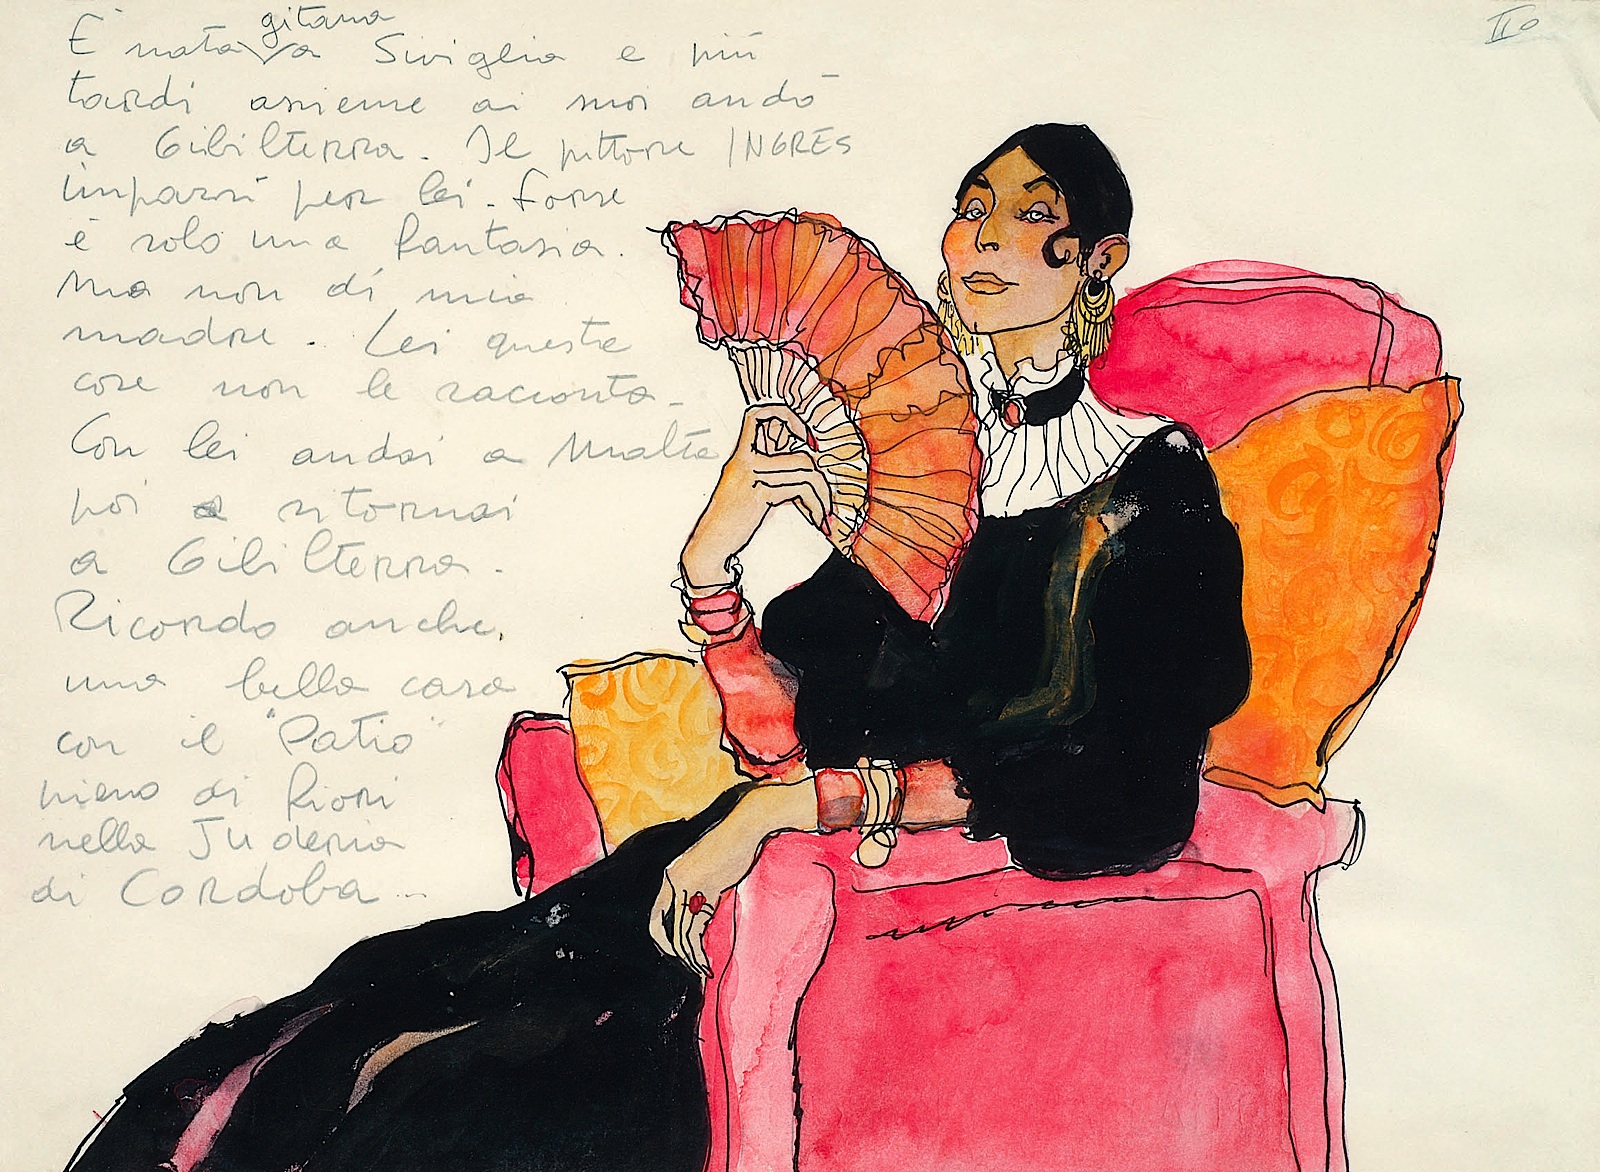 IIo
È nata gitana a Siviglia e più
tardi assieme ai suoi andò
a Gibilterra. Il pittore INGRES
impazzì per lei. Forse
è solo una fantasia.
Ma non di mia
madre. Lei queste
cose non le racconta.
Con lei andai a Malta
poi ritornai
a Gibilterra.
Ricordo anche,
una bella casa
con il "Patio"
pieno di fiori
nella Juderia
di Cordoba...